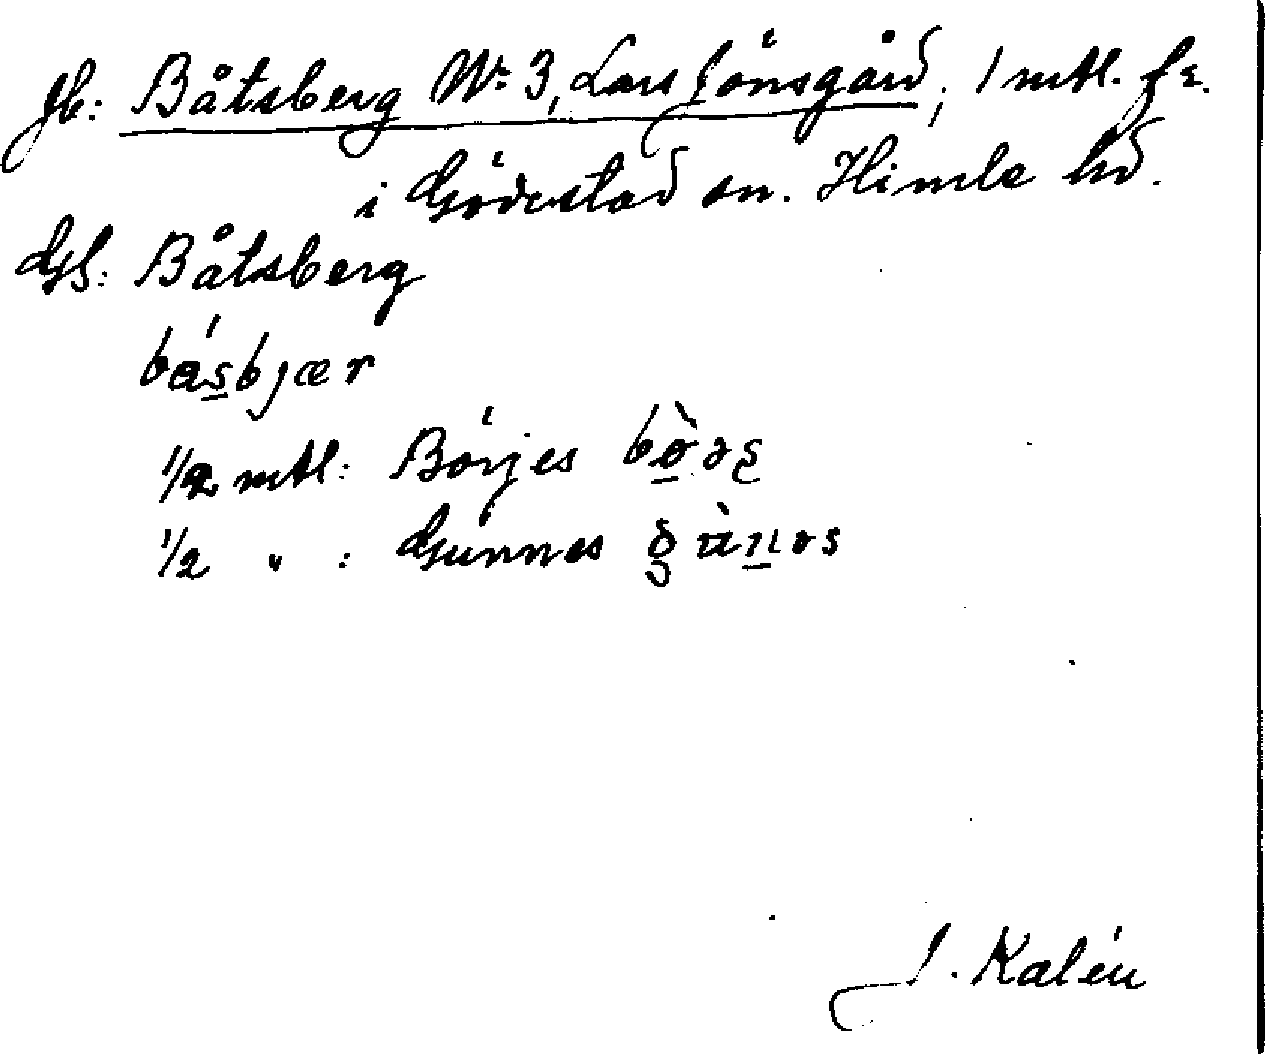 Jb: Båtsberg No 3, Lars Jönsgård; 1 mtl. fr.
i Gödestad sn. Himle hd.
GS: Båtsberg
básbjær
1/2 mtl: Börjes
1/2 " : Gunnes
J. Kalén